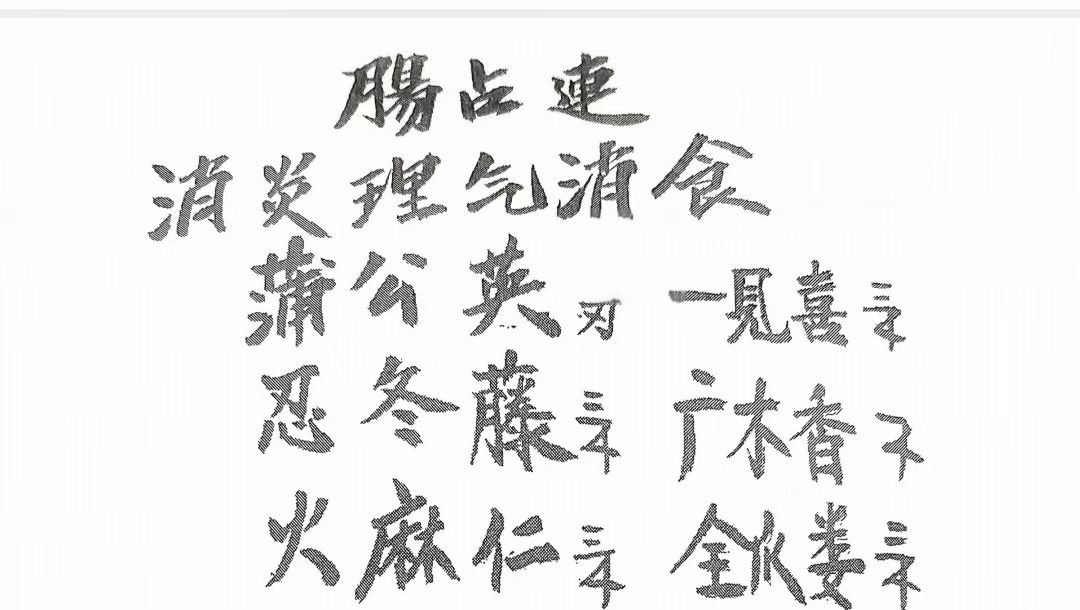 腸占連
消炎理气消食
蒲公英 一見喜
忍冬藤 广木香
火麻仁 全瓜娄